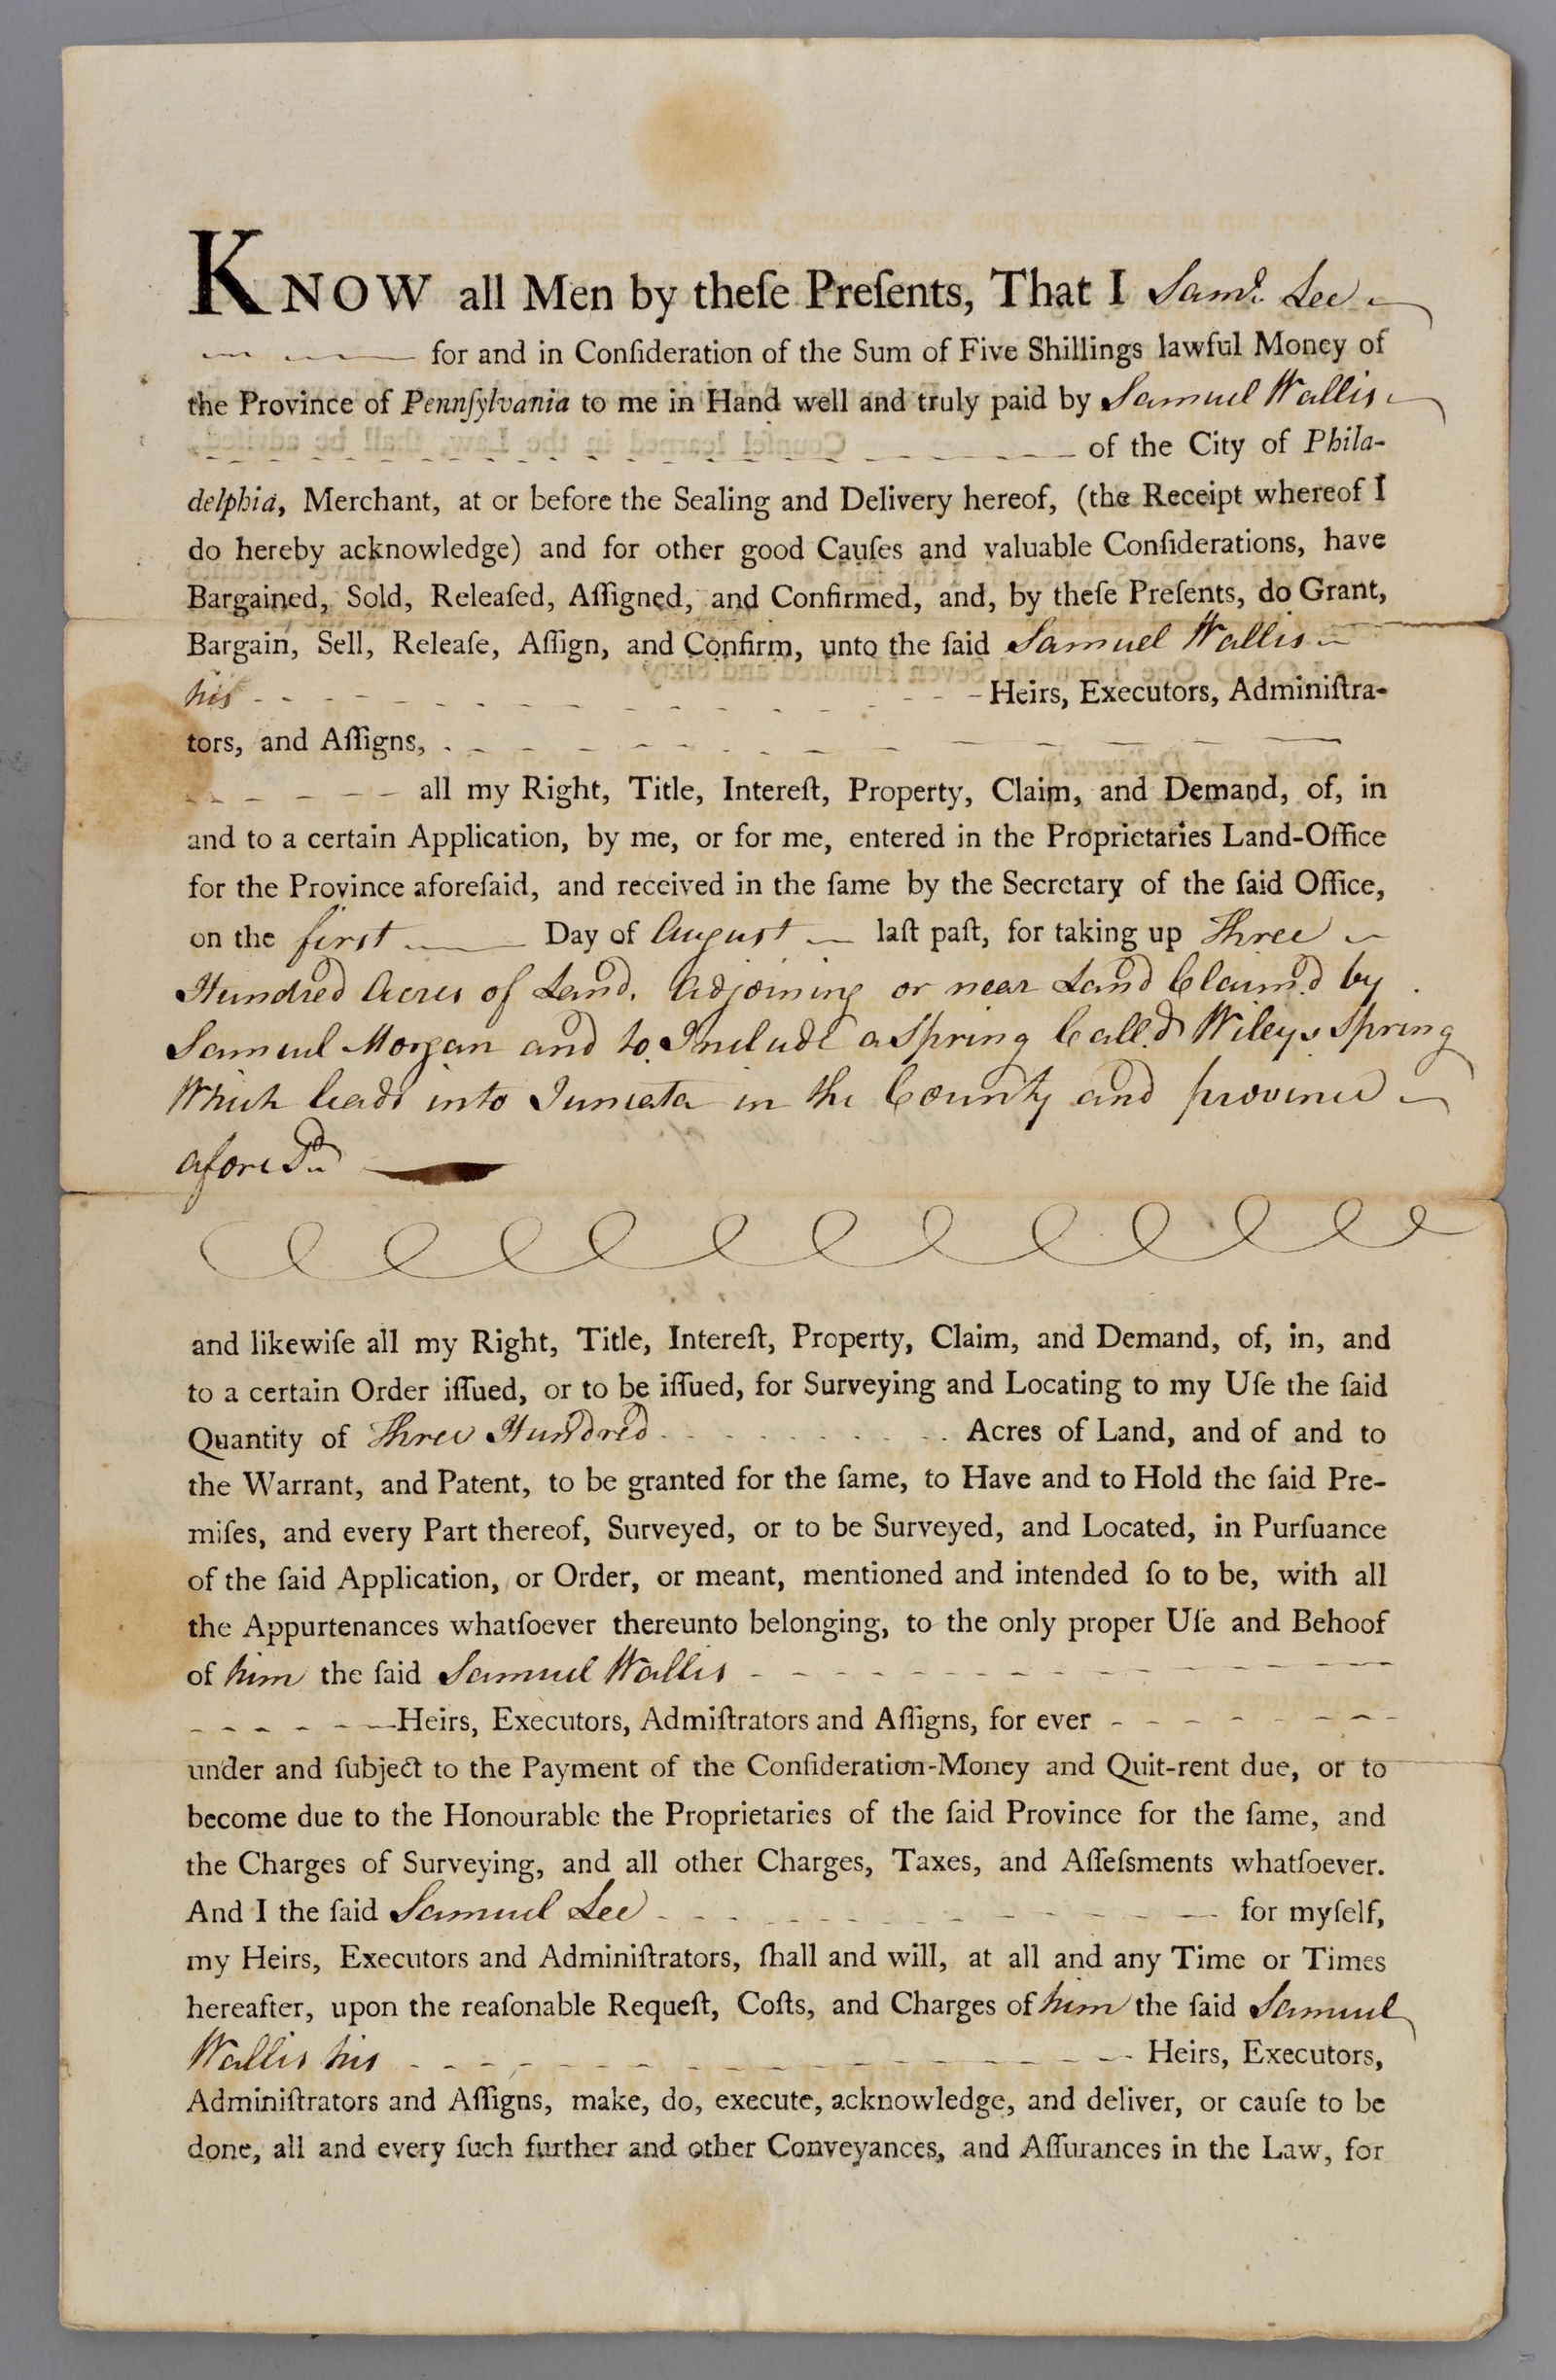 KNOW all Men by theſe Preſents, That I Saml. Lee
for and in Conſideration of the Sum of Five Shillings lawful Money of
the Province of Pennſylvania to me in Hand well and truly paid by Samuel Wallis
of the City of Phila-
delphia, Merchant, at or before the Sealing and Delivery hereof, (the Receipt whereof I
do hereby acknowledge) and for other good Cauſes and valuable Conſiderations, have
Bargained, Sold, Releaſed, Aſſigned, and Confirmed, and, by theſe Preſents, do Grant,
Bargain, Sell, Releaſe, Aſſign, and Confirm, unto the ſaid Samuel Wallis
his - - - - Heirs, Executors, Adminiſtra-
tors, and Aſſigns,
all my Right, Title, Intereſt, Property, Claim, and Demand, of, in
and to a certain Application, by me, or for me, entered in the Proprietaries Land-Office
for the Province aforeſaid, and received in the ſame by the Secretary of the ſaid Office,
on the first Day of August laſt paſt, for taking up Three
Hundred Acres of Land. Adjoining or near Land Claim'd by
Samuel Morgan and to Include a Spring Call'd Wileys Spring
Which leads into Juniata in the County and province
afore Sd.
and likewiſe all my Right, Title, Intereſt, Property, Claim, and Demand, of, in, and
to a certain Order iſſued, or to be iſſued, for Surveying and Locating to my Uſe the ſaid
Quantity of Three Hundred Acres of Land, and of and to
the Warrant, and Patent, to be granted for the ſame, to Have and to Hold the ſaid Pre-
miſes, and every Part thereof, Surveyed, or to be Surveyed, and Located, in Purſuance
of the ſaid Application, or Order, or meant, mentioned and intended ſo to be, with all
the Appurtenances whatſoever thereunto belonging, to the only proper Uſe and Behoof
of him the ſaid Samuel Wallis
Heirs, Executors, Admiſtrators and Aſſigns, for ever
under and ſubject to the Payment of the Conſideration-Money and Quit-rent due, or to
become due to the Honourable the Proprietaries of the ſaid Province for the ſame, and
the Charges of Surveying, and all other Charges, Taxes, and Aſſeſsments whatſoever.
And I the ſaid Samuel Lee for myſelf,
my Heirs, Executors and Adminiſtrators, ſhall and will, at all and any Time or Times
hereafter, upon the reaſonable Requeſt, Coſts, and Charges of him the ſaid Samuel
Wallis his Heirs, Executors,
Adminiſtrators and Aſſigns, make, do, execute, acknowledge, and deliver, or cauſe to be
done, all and every ſuch further and other Conveyances, and Aſſurances in the Law, for